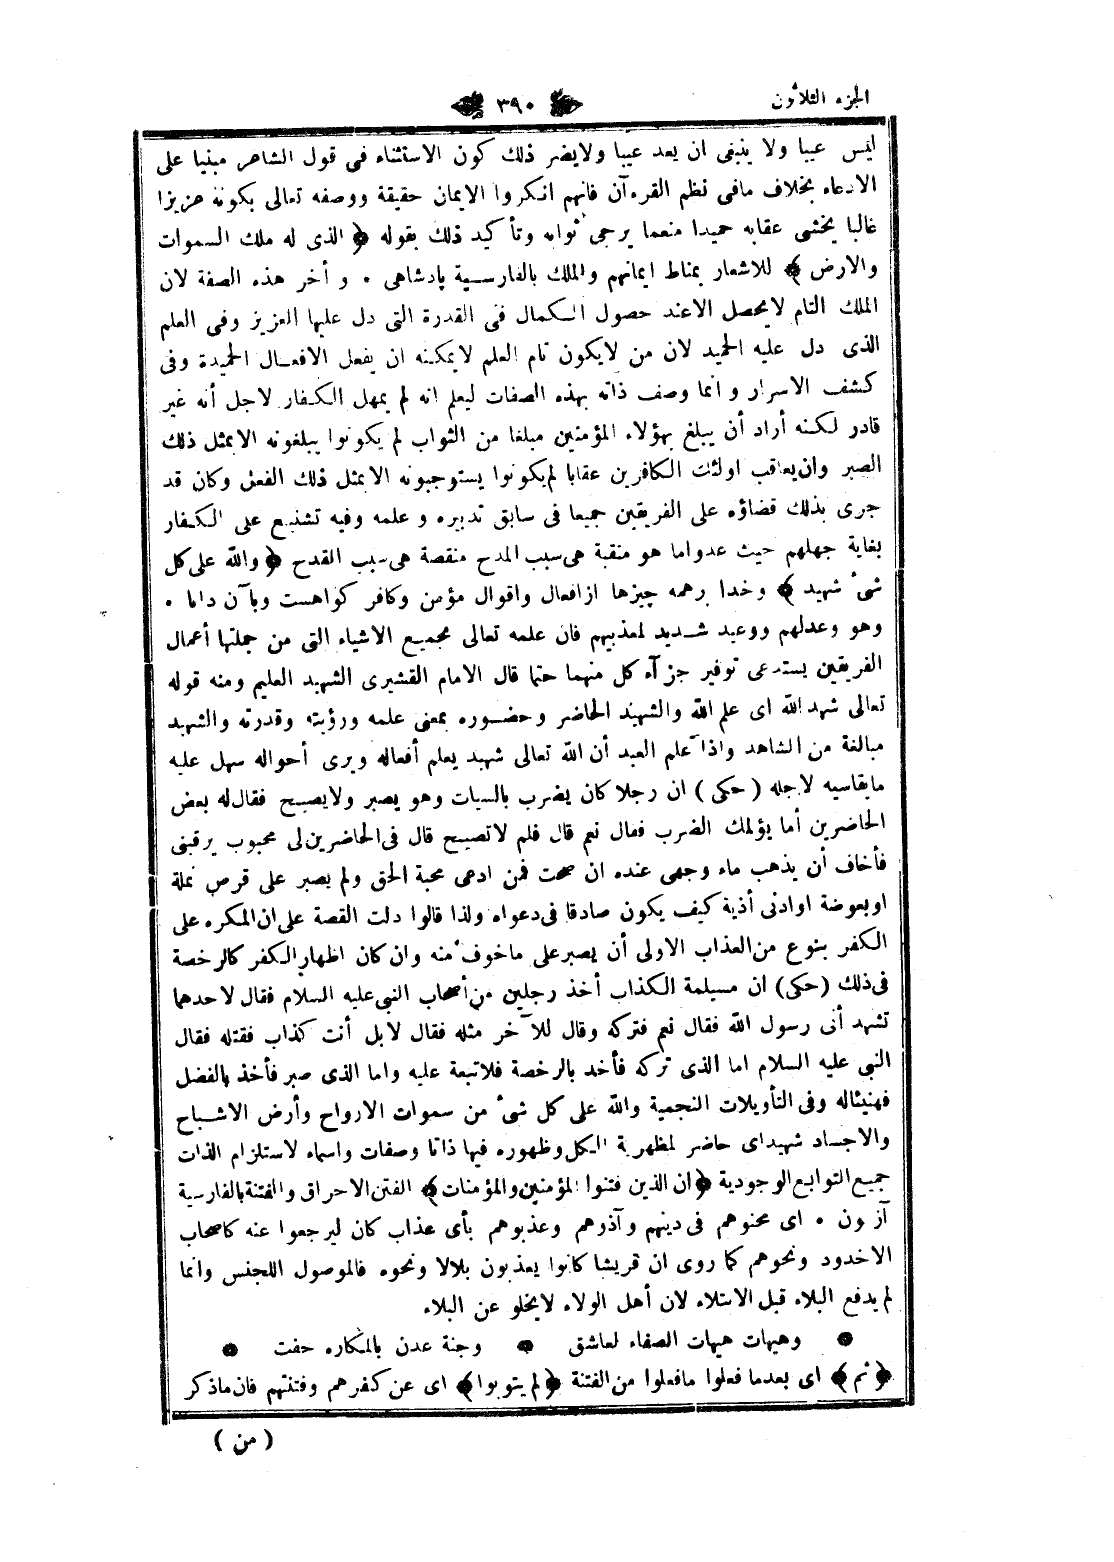 الجزء الثلاثون
٣٩٠
ليس عيبا ولا ينبغى ان يعد عيبا ولايضر ذلك كون الاستثناء فى قول الشاعر مبنيا على
الادعاء بخلاف مافى نظم القرءآن فانهم انكروا الايمان حقيقة ووصفه تعالى بكونه عزيزا
غالبا يخشى عقابه حميدا منعما يرجى ثوابه وتأكيد ذلك بقوله ﴿ الذى له ملك السموات
والارض ﴾ للاشعار بمناط ايمانهم والملك بالفارسية پادشاهى • وأخر هذه الصفة لان
الملك التام لايحصل الاعند حصول الكمال فى القدرة التى دل عليها العزيز وفى العلم
الذى دل عليه الحميد لان من لايكون تام العلم لايمكنه ان يفعل الافعال الحميدة وفى
كشف الاسرار وانما وصف ذاته بهذه الصفات ليعلم انه لم يمهل الكفار لاجل أنه غير
قادر لكنه أراد أن يبلغ بهؤلاء المؤمنين مبلغا من الثواب لم يكونوا يبلغونه الابمثل ذلك
الصبر وان يعاقب اولئك الكافرين عقابا لم يكونوا يستوجبونه الابمثل ذلك الفعل وكان قد
جرى بذلك قضاؤه على الفريقين جميعا فى سابق تدبيره وعلمه وفيه تشنيع على الكفار
بغاية جهلهم حيث عدواما هو منقبة هى سبب المدح منقصة هى سبب القدح ﴿ والله على كل
شئ شهيد ﴾ وخدا برهمه چيزها ازافعال واقوال مؤمن وكافر كواهست وبآن دانا •
وهو وعدلهم ووعيد شديد لمعذبيهم فان علمه تعالى بجميع الاشياء التى من جملتها أعمال
الفريقين يستدعى توفير جزآء كل منهما حتما قال الامام القشيرى الشهيد العليم ومنه قوله
تعالى شهد الله اى علم الله والشهيد الحاضر وحضوره بمعنى علمه ورؤيته وقدرته والشهيد
مبالغة من الشاهد واذا علم العبد أن الله تعالى شهيد يعلم أفعاله ويرى أحواله سهل عليه
مايقاسيه لاجله ( حكى ) ان رجلا كان يضرب بالسياط وهو يصبر ولايصيح فقال له بعض
الحاضرين أما يؤلمك الضرب فقال نعم قال فلم لاتصيح قال فى الحاضرين لى محبوب يرقبنى
فأخاف أن يذهب ماء وجهى عنده ان صحت فمن ادعى محبة الحق ولم يصبر على قرص نملة
اوبعوضة اوادنى أذية كيف يكون صادقا فى دعواه ولذا قالوا دلت القصة على ان المكره على
الكفر بنوع من العذاب الاولى أن يصبر على ماخوف منه وان كان اظهار الكفر كالرخصة
فى ذلك (حكى) ان مسيلمة الكذاب أخذ رجلين من أصحاب النبى عليه السلام فقال لاحدهما
تشهد أنى رسول الله فقال نعم فتركه وقال للآخر مثله فقال لابل أنت كذاب فقتله فقال
النبى عليه السلام اما الذى تركه فأخذ بالرخصة فلاتبعة عليه واما الذى صبر فأخذ بالفضل
فهنيئاله وفى التأويلات النجمية والله على كل شئ من سموات الارواح وأرض الاشباح
والاجساد شهيداى حاضر لمظهرية الكل وظهوره فيها ذاتا وصفات واسماء لاستلزام الذات
جميع التوابع الوجودية ﴿ ان الذين فتنوا المؤمنين والمؤمنات ﴾ الفتن الاحراق والفتنة بالفارسية
آزمون • اى محنوهم فى دينهم وآذوهم وعذبوهم بأى عذاب كان ليرجعوا عنه كاصحاب
الاخدود ونحوهم كما روى ان قريشا كانوا يعذبون بلالا ونحوه فالموصول اللجنس وانما
لم يدفع البلاء قبل الابتلاء لان أهل الولاء لايخلو عن البلاء
• وهيهات هيهات الصفاء لعاشق • وجنة عدن بالمكاره حفت •
﴿ ثم ﴾ اى بعدما فعلوا مافعلوا من الفتنة ﴿ لم يتوبوا ﴾ اى عن كفرهم وفتنتهم فان ماذكر
( من )